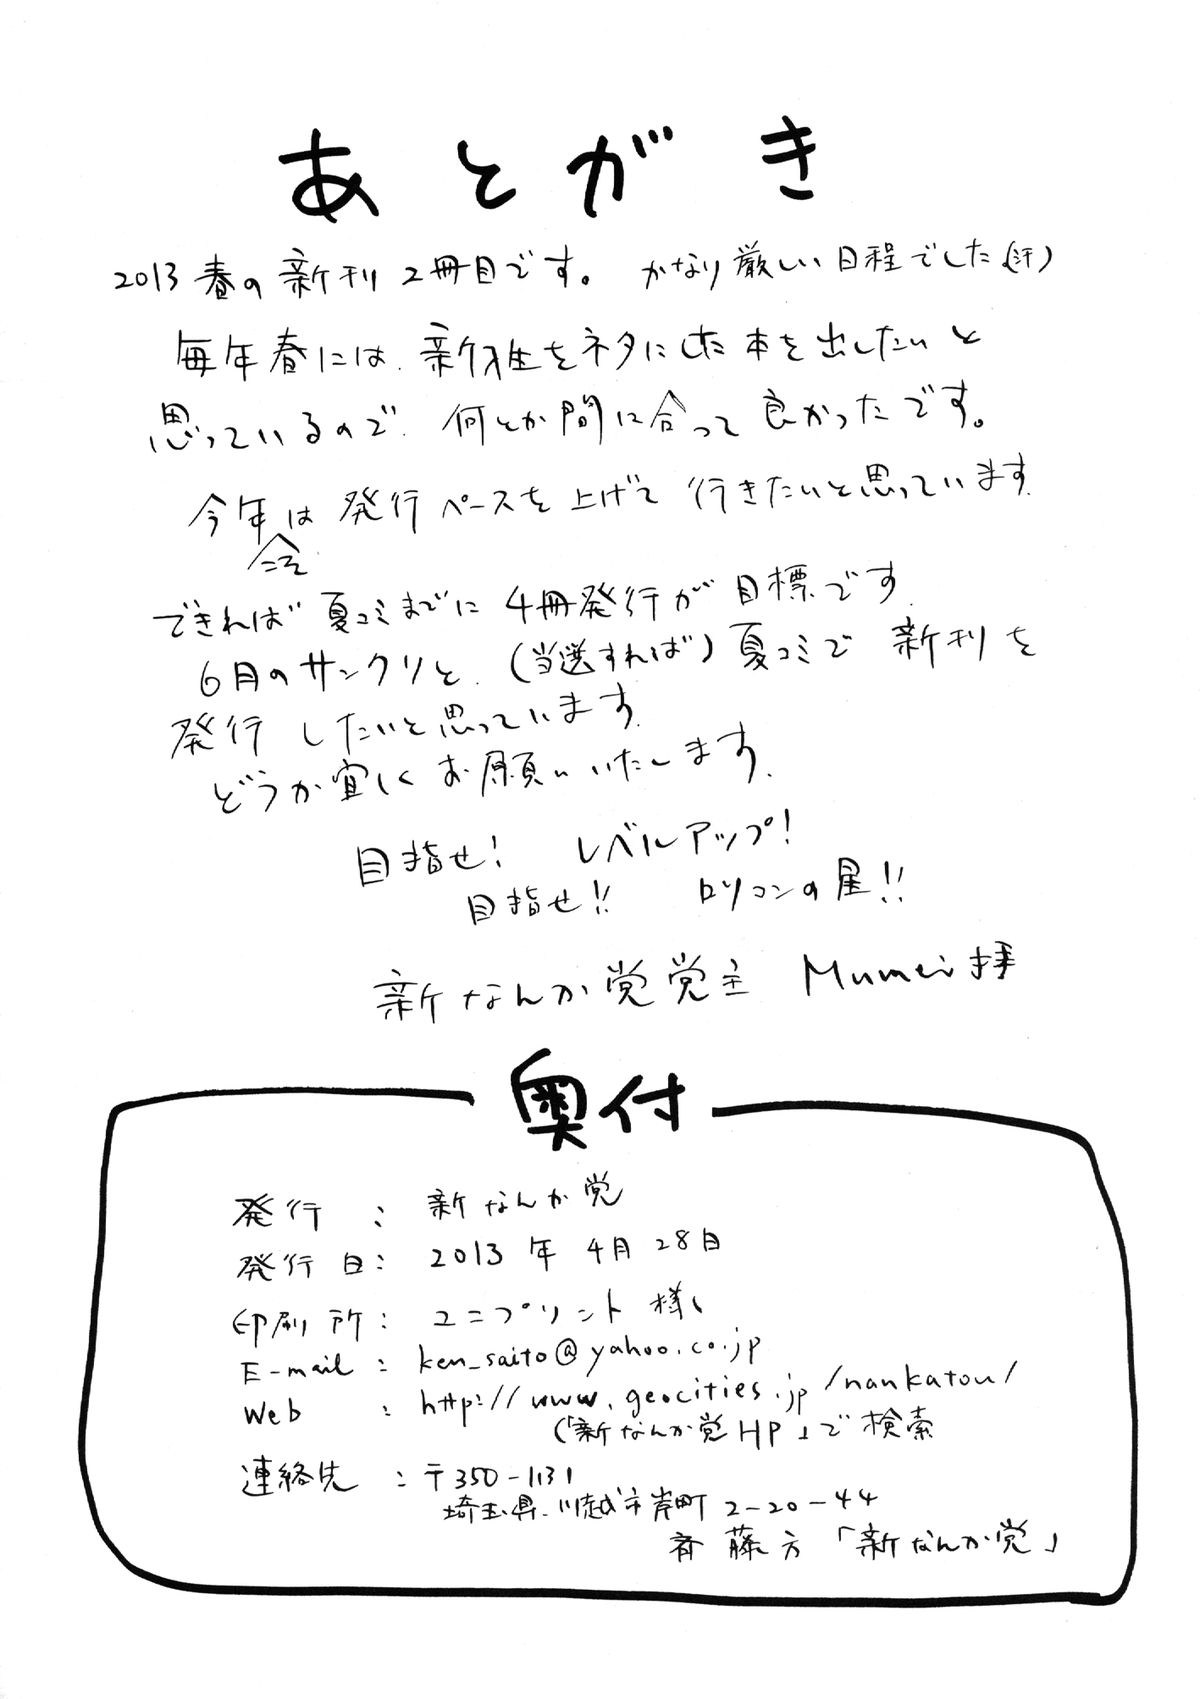 あとがき
2013春の新刊2冊目です。 かなり厳しい日程でした(汗)
毎年春には、新入生をネタにした本を出したいと
思っているので、何とか間に合って良かったです。
今年こそは発行ペースを上げて行きたいと思っています。
できれば夏コミまでに4冊発行が目標です。
6月のサンクリと、(当選すれば)夏コミで新刊を
発行したいと思っています。
どうか宜しくお願いいたします。
目指せ! レベルアップ!
目指せ!! ロリコンの星!!
新なんか党党主 Mumei拝
奥付
発行 : 新なんか党
発行日: 2013年4月28日
印刷所: ユニプリント様
E-mail : ken_saito@yahoo.co.jp
Web : http://www.geocities.jp/nankatou/
(「新なんか党HP」で検索
連絡先 : 〒350-1131
埼玉県川越市岸町2-20-44
斉藤方「新なんか党」